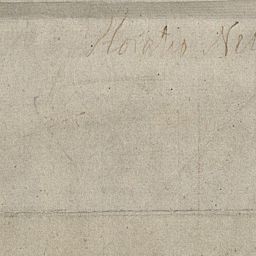 Horatio Nel